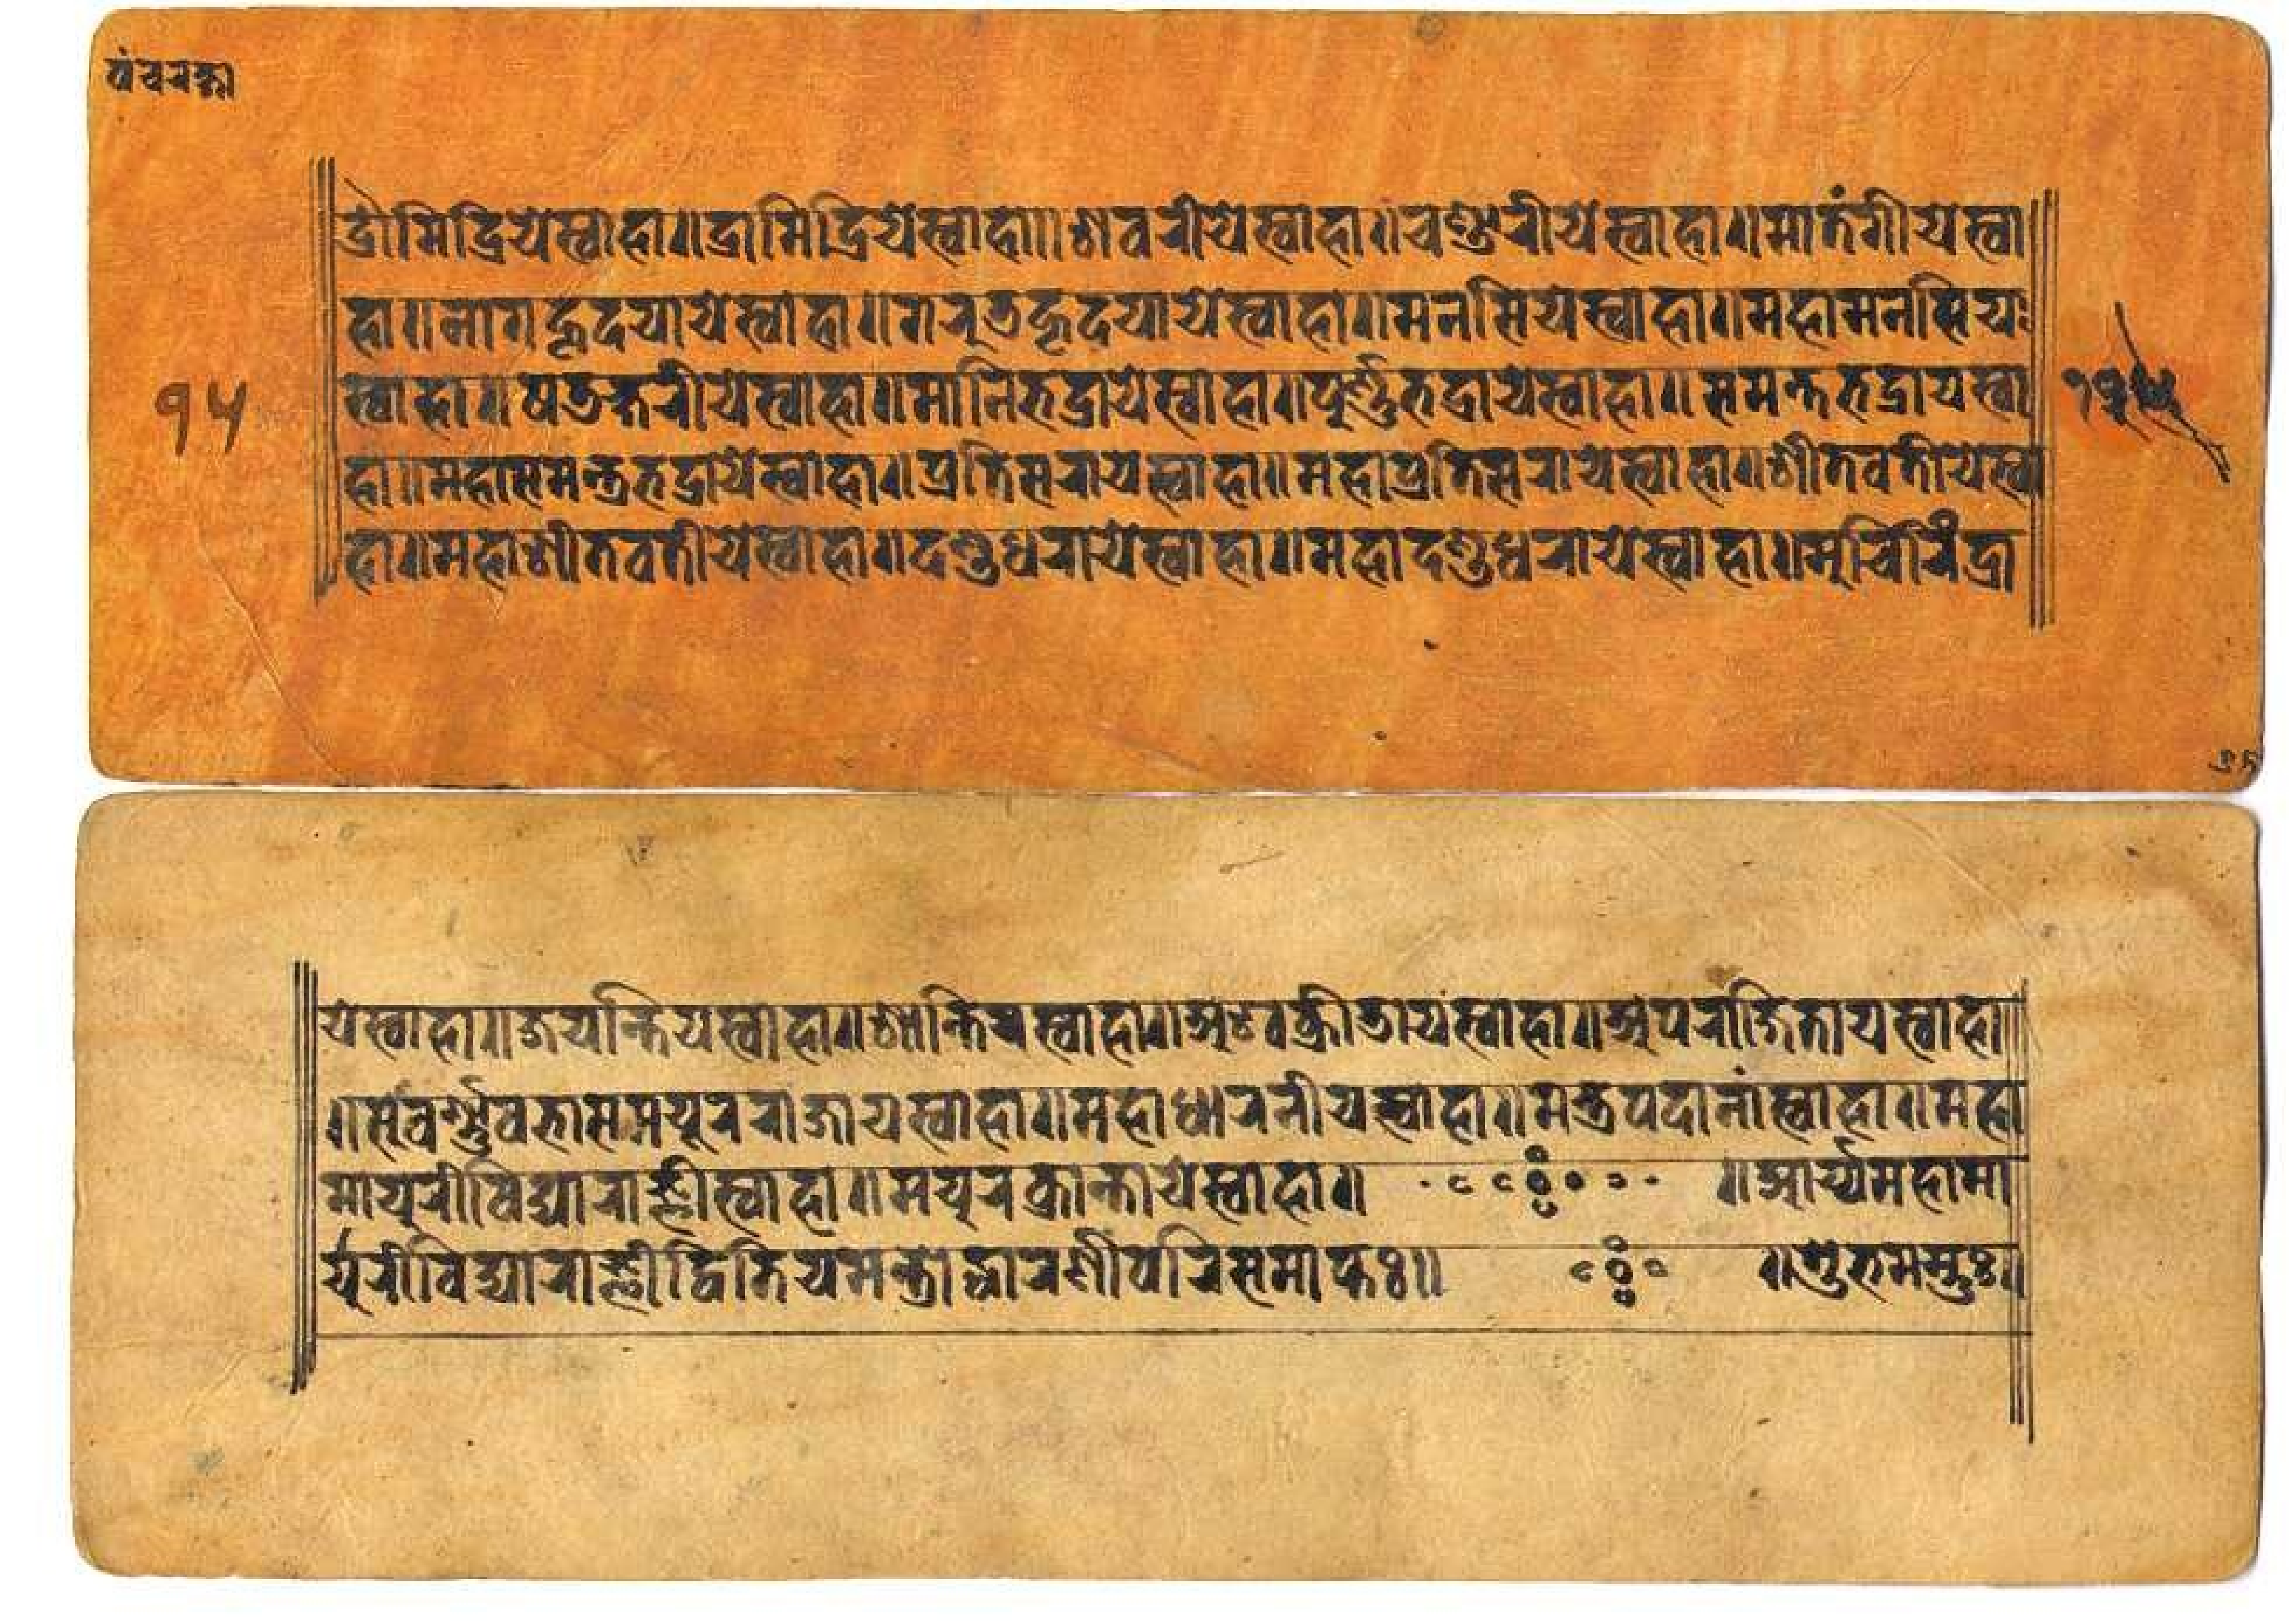 पंचरक्षा
द्रामिद्रियेस्वाहा॥द्रामिद्रियेस्वाहा॥शवरीयेस्वाहा॥चण्डारीयेस्वाहा॥मातंगीयेस्वा
हा॥नागहृदयायेस्वाहा॥गरुतहृदयायेस्वाहा॥मनसियेस्वाहा॥महामनसियः
१५
स्वाहा॥षतक्षरीयेस्वाहा॥मानिभद्रायेस्वाहा॥पूर्ण्णभद्रायेस्वाहा॥समन्तभद्रायस्वा
हा॥महासमन्त्रभद्रायेस्वाहा॥प्रतिसरायेस्वाहा॥महाप्रतिसरायेस्वाहा॥शीतवतीयेस्वा
हा॥महाशीतवतीयेस्वाहा॥दण्डधरायेस्वाहा॥महादण्डधरायेस्वाहा॥मुचिरिंद्रा
येस्वाहा॥जयन्तियस्वाहा॥शान्तियस्वाहा॥अश्वक्रीडायस्वाहा॥अपराजितायस्वाहा
॥सुवर्ण्णवभासमयूरराजायस्वाहा॥महाधारनीयस्वाहा॥मन्त्रपदानांस्वाहा॥महा
मायुरीविद्याराज्ञीस्वाहा॥मयुरक्रान्तायेस्वाहा॥ ॥आर्य्यमहामा
यूरीविद्याराज्ञीद्वितियमन्त्रोद्धारणीपरिसमाप्तः॥ ॥शुभमस्तुः॥